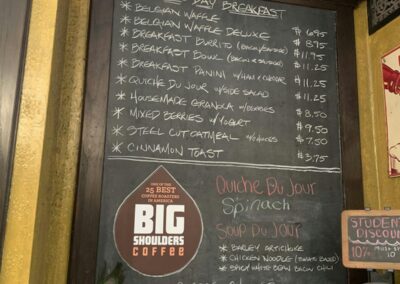 DAY BREAKFAST
* BELGIAN WAFFLE $6.95
* BELGIAN WAFFLE DELUXE $8.95
* BREAKFAST BURRITO (BACON/SAUSAGE) $11.95
* BREAKFAST BOWL (BACON & SAUSAGE) $11.25
* BREAKFAST PANINI W/HAM & CHEDDAR $11.25
* QUICHE DU JOUR W/SIDE SALAD $11.25
* HOUSEMADE GRANOLA W/ $8.50
* MIXED BERRIES W/YOGURT $9.50
* STEEL CUT OATMEAL $7.50
* CINNAMON TOAST $3.75
ONE OF THE
25 BEST
COFFEE ROASTERS
IN AMERICA
BIG
SHOULDERS
COFFEE
QUICHE DU JOUR
SPINACH
SOUP DU JOUR
* BARLEY ARTICHOKE
* CHICKEN NOODLE (TOMATO BASED)
* SPICY WHITE BEAN BACON CHILI
STUDENT
DISCOU
10%